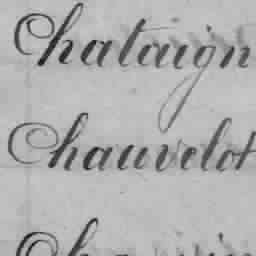 Chataign
Chauvelot